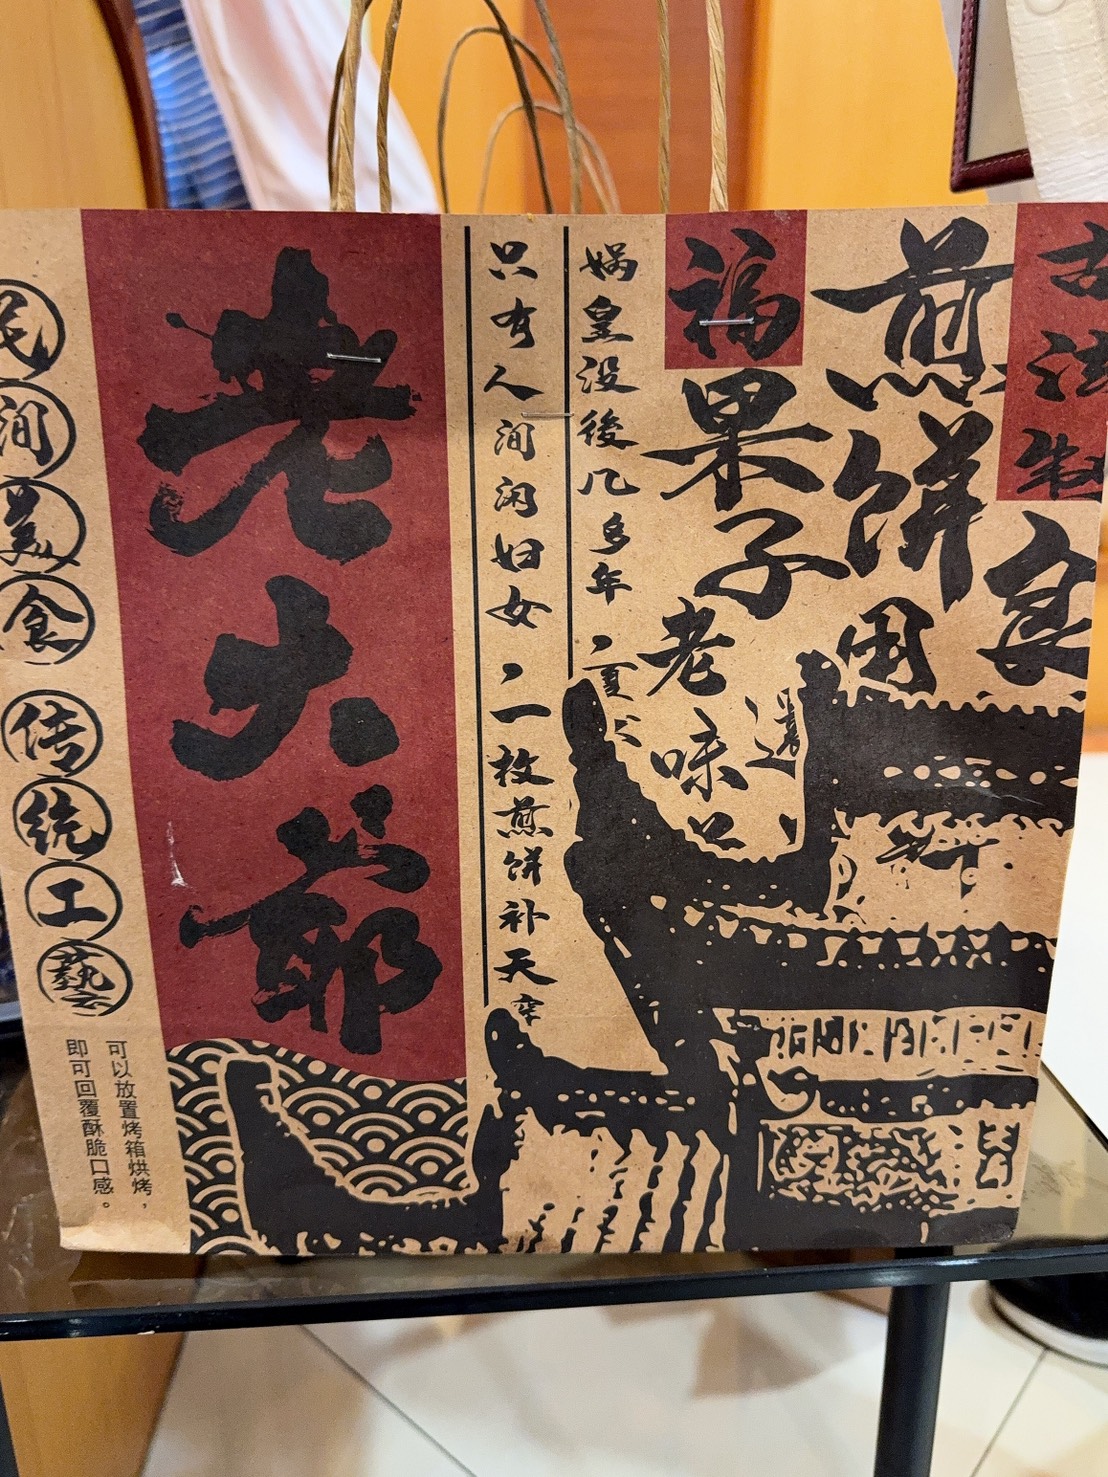 古法制
良
煎饼
用
福
果子
老味
還
娲皇没後几多年
夏
只有人间闲妇女
一枚煎饼补天穿
老大爺
民间美食
传统工藝
可以放置烤箱烘烤，
即可回覆酥脆口感。